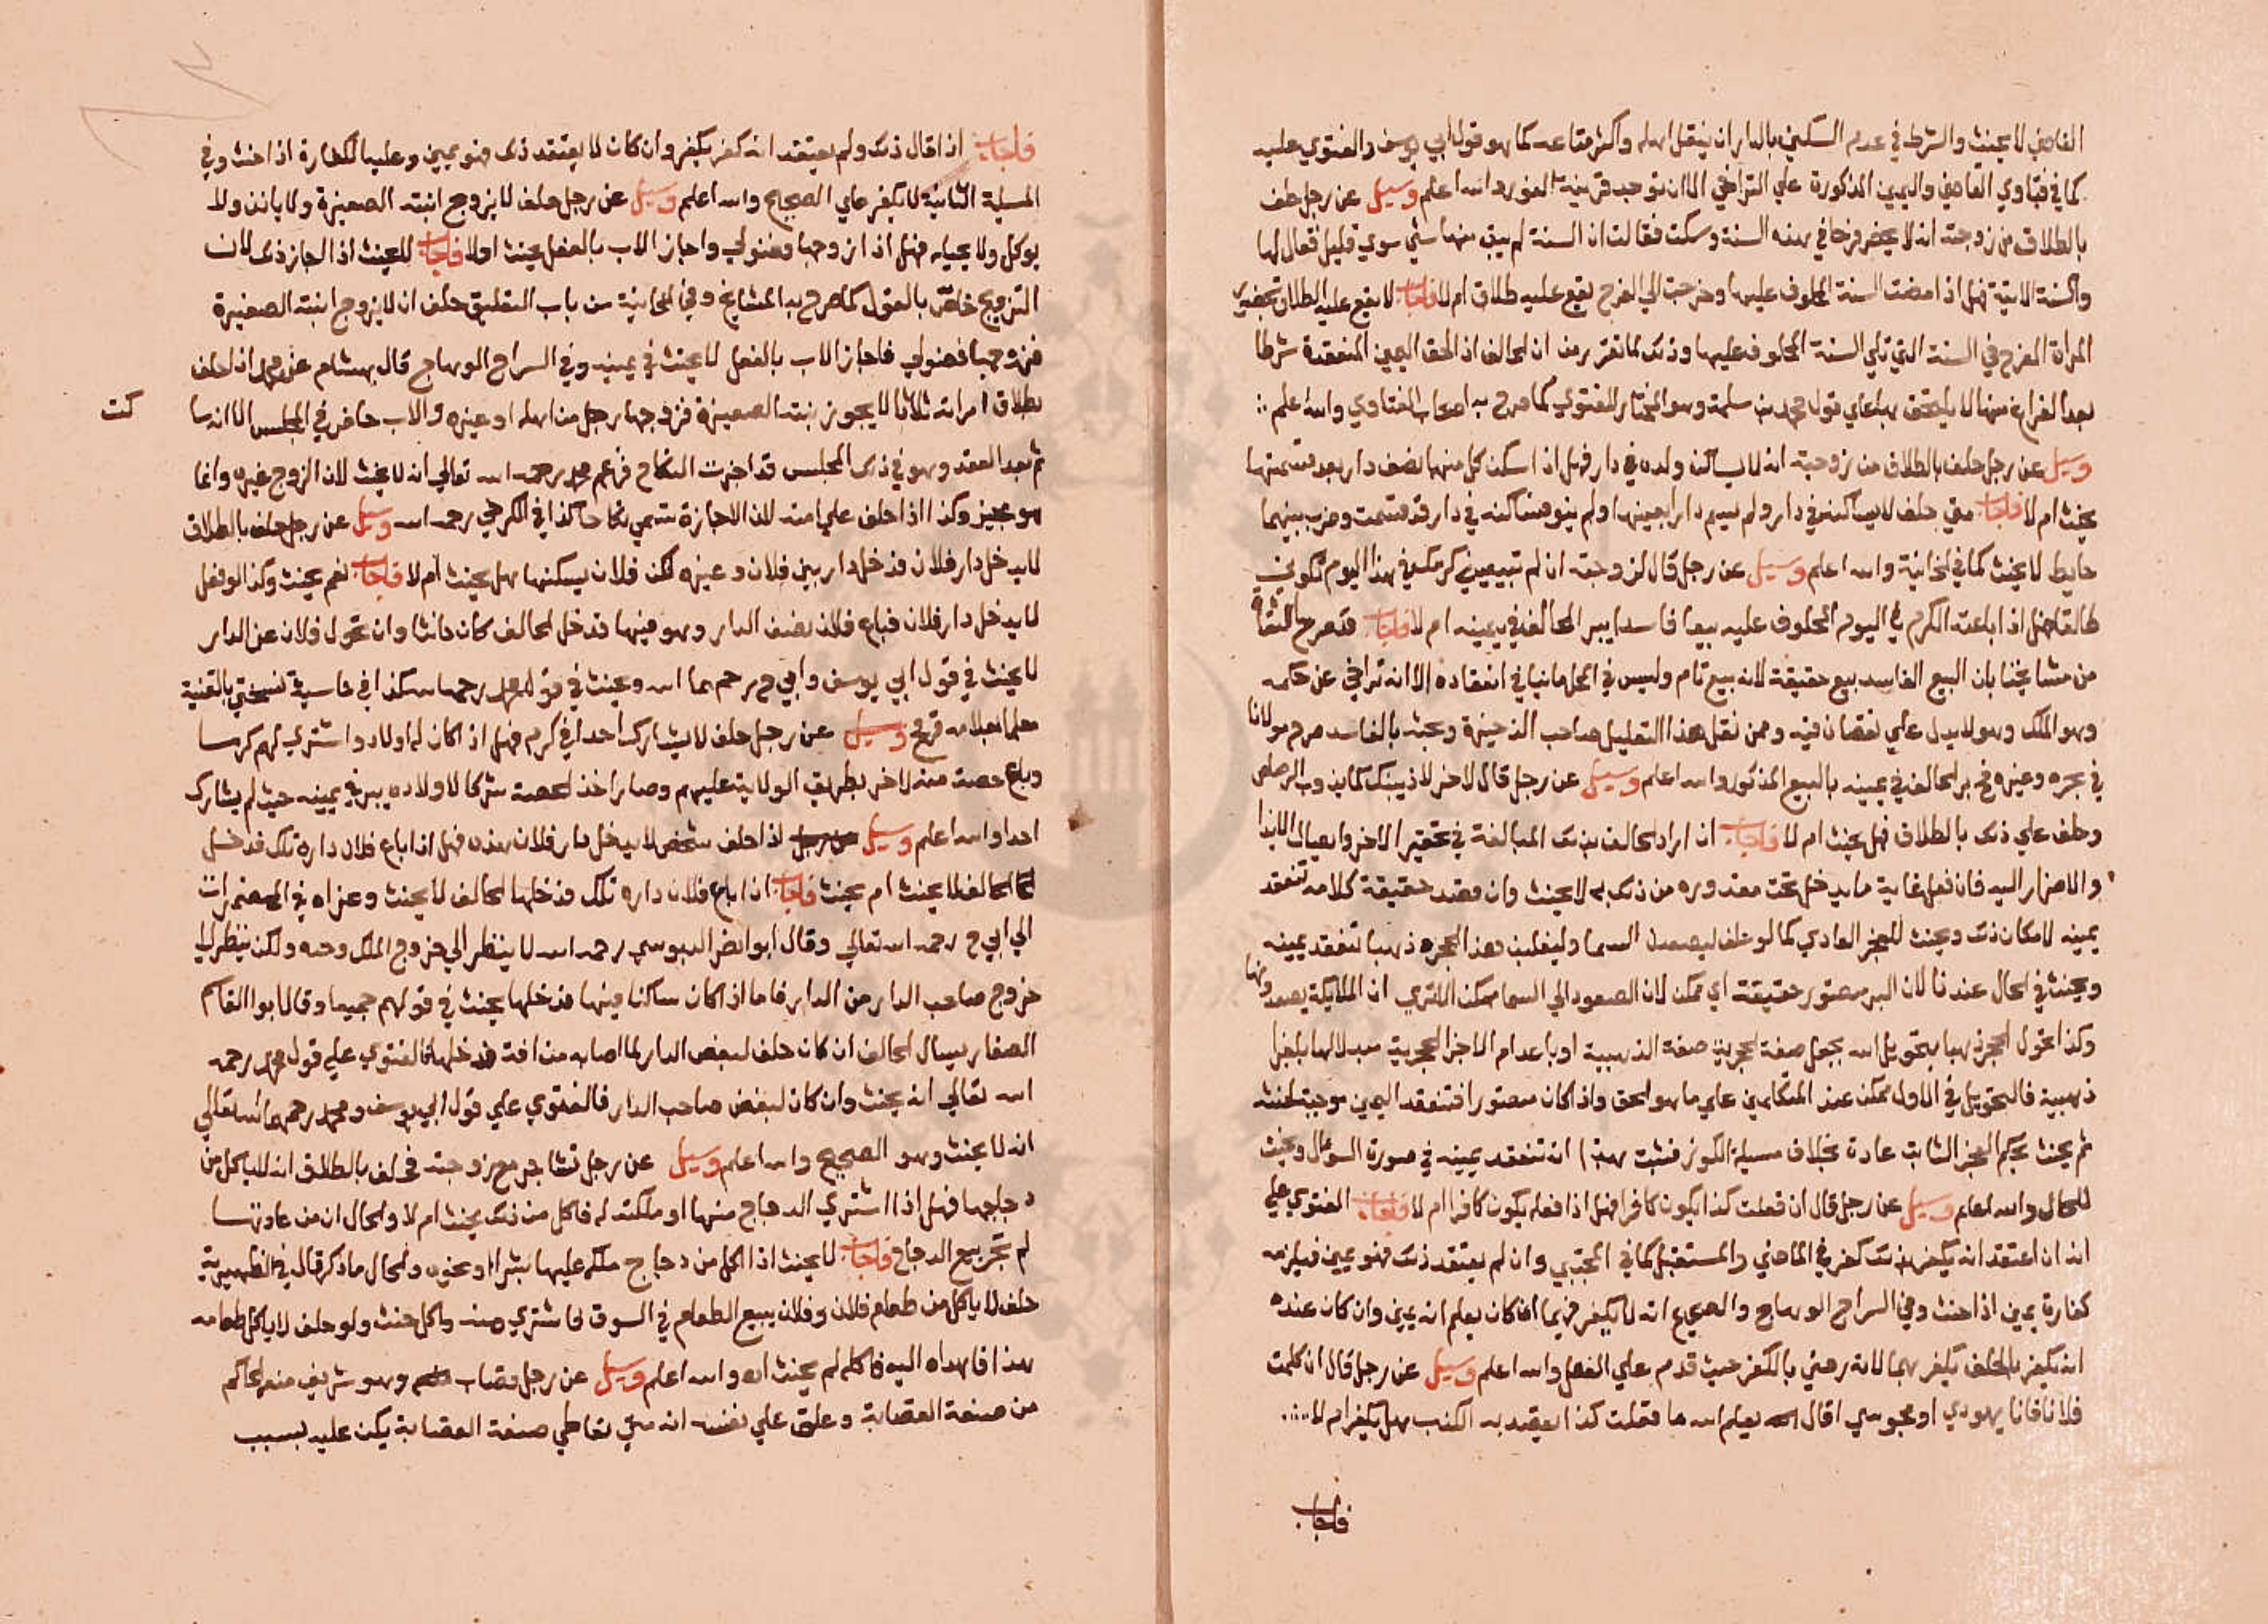 القاضي لا يحنث والشرط في عدم السكني بالدار ان ينقل اهله واكثر متاعه كما هو قول ابي يوسف والفتوي عليه
كما في فتاوي القاضي واليمين المذكورة علي التراخي الا ان توجد قرينة الفور والله اعلم وسيل عن رجل حلف
بالطلاق من زوجته انه لا يحضر فرحا في هذه السنة وسكت فقالت ان السنة لم يبق منها شي سوي قليل فقال لها
والسنة الاتية فهل اذا مضت السنة المحلوف عليها وخرجت الي الفرح يقع عليه طلاق ام لا فاجاب لا يقع عليه الطلاق بحضور
المراة الفرح في السنة التي تلي السنة المحلوف عليها وذلك لما تقرر من ان الحالف اذا الحق اليمين المنعقدة شرطا
بعد الفراغ منها لا يلتحق بها علي قول محمد بن سلمة وهو المختار للفتوي كما صرح به اصحاب الفتاوي والله اعلم
وسيل عن رجل حلف بالطلاق من زوجته انه لا يساكن ولده في دار فهل اذا سكن كل منهما نصف دار بعد قسمتها
يحنث ام لا فاجاب متي حلف لا يساكنه في دار ولم يسم دارا بعينها ولم ينو فساكنه في دار قد قسمت وضرب بينهما
حايط لا يحنث كما في الخانية والله اعلم وسيل عن رجل قال لزوجته ان لم تبيعيني كرمك في هذا اليوم تكوني
طالقا فهل اذا باعته الكرم في اليوم المحلوف عليه بيعا فاسدا يبر الحالف في يمينه ام لا فاجاب قد صرح الثقاة
من مشايخنا بان البيع الفاسد بيع حقيقة لانه بيع تام وليس في المحل ما ينافي انعقاده الا انه تراخي عن حكمه
وهو الملك وهو لا يدل علي نقصان فيه وممن نقل هذا التعليل صاحب الذخيرة وبحثه بالفاسد صرح مولانا
في بحره وغيره فح بر الحالف في يمينه بالبيع المذكور والله اعلم وسيل عن رجل قال لاخر لاذيبنك كما يذوب الرصاص
وحلف علي ذلك بالطلاق فهل يحنث ام لا فاجاب ان اراد الحالف بذلك المبالغة في تحقير الاخر وايصال الايذا
والاضرار اليه فان فعل غاية ما يدخل تحت مقدوره من ذلك به لا يحنث وان قصد حقيقة كلامه تنعقد
يمينه لامكان ذلك ويحنث للعجز العادي كما لو حلف ليصعدن السما وليقلبن هذا الحجر ذهبا تنعقد يمينه
ويحنث في الحال عندنا لان البر متصور حقيقة اي ممكن لان الصعود الي السما ممكن الا تري ان الملايكة يصعدونها
وكذا تحول الحجر ذهبا بتحويل الله بجعل صفة الحجرية صفة الذهبية او باعدام الاجزا الحجرية وابدالها باجزا
ذهبية فالتحويل في الاول ممكن عند المتكلمين علي ما هو الحق واذا كان متصورا فتنعقد اليمين موجبة لحنثه
ثم يحنث بحكم العجز الثابت عادة بخلاف مسيلة الكوز فثبت بهذا ان تنعقد يمينه في صورة السوال ويحنث
للحال والله اعلم وسيل عن رجل قال ان فعلت كذا يكون كافرا فهل اذا فعله يكون كافرا ام لا فاجاب الفتوي علي
انه ان اعتقد انه يكفر بذلك كفر في الماضي والمستقبل كما في المجتبي وان لم يعتقد ذلك فهو يمين فيلزمه
كفارة يمين اذا حنث وفي السراج الوهاج والصحيح انه لا يكفر فيهما اذا كان يعلم انه يمين وان كان عنده
انه يكفر بالحلف يكفر بهما لانه رضي بالكفر حيث قدم علي الفعل والله اعلم وسيل عن رجل قال ان كلمت
فلانا فانا يهودي او مجوسي اقال الله يعلم الله ما فعلت كذا يقصد به الكذب هل يكفر ام لا
فاجاب
فاجاب اذا قال ذلك ولم يعتقد انه كفر يكفر وان كان لا يعتقد ذلك فهو يمين وعليه الكفارة اذا حنث وفي
المسيلة الثانية لا يكفر علي الصحيح والله اعلم وسيل عن رجل حلف لا يزوج ابنته الصغيرة ولا ياذن ولا
يوكل ولا يحياه فهل اذا زوجها فضولي واجاز الاب بالفعل يحنث اولا فاجاب لا يحنث اذا اجاز ذلك لان
التزويج خاص بالقول كما صرح به المشايخ وفي الخانية من باب التعليق حلف ان لا يزوج ابنته الصغيرة
فزوجها فضولي فاجاز الاب بالفعل لا يحنث في يمينه وفي السراج الوهاج قال هشام عن محمد اذا حلف
بطلاق امراته ثلاثا لا يجوز بنته الصغيرة فزوجها رجل من اهله او غيره والاب حاضر في المجلس الا انه سا
كت
ثم بعد العقد وهو في ذلك المجلس قد اجزت النكاح فزعم محمد رحمه الله تعالي انه لا يحنث لان الزوج غيره وانما
هو مجيز وكذا اذا حلف علي امته لان الاجازة تسمي نكاحا كذا في الكرخي رحمه الله وسيل عن رجل حلف بالطلاق
لا يدخل دار فلان فدخل دار بين فلان وغيره لكن فلان يسكنها هل يحنث ام لا فاجاب نعم يحنث وكذا لو فعل
لا يدخل دار فلان فباع فلان نصف الدار وهو فيها فدخل الحالف كان حانثا وان تحول فلان عن الدار
لا يحنث في قول ابي يوسف وابي ح رحمهما الله ويحنث في قول محمد رحمه الله كذا في حاسية نسختي بالقنية
معلما بعلامة قح وسيل عن رجل حلف لا يشارك احدا في كرم فهل اذا كان له اولاد واشتري لهم كرما
وباع حصة منه لاخر بطريق الولاية عليهم وصار اخذ الحصة شركا لاولاده يبر في يمينه حيث لم يشارك
احدا والله اعلم وسيل اذا حلف شخص لا يدخل دار فلان هذه فهل اذا باع فلان داره تلك فدخل
الحالف لا يحنث ام يحنث فاجاب ان باع فلان داره تلك فدخلها الحالف لا يحنث وعزاه في المضمرات
الي ابي ح رحمه الله تعالي وقال ابو النضر الدبوسي رحمه الله لا ينظر الي خروج الملك وحده ولكن ينظر الي
خروج صاحب الدار من الدار فاما اذا كان ساكنا فيها فدخلها يحنث في قولهم جميعا وقال ابو القاسم
الصفار يسال الحالف ان كان حلف لبغض الدار لما اصابه من افة فدخلها فالفتوي علي قول محمد رحمه
الله تعالي انه يحنث وان كان لبغض صاحب الدار فالفتوي علي قول ابي يوسف ومحمد رحمهما الله تعالي
انه لا يحنث وهو الصحيح والله اعلم وسيل عن رجل تشاجر مع زوجته فحلف بالطلاق انه لا ياكل من
دجاجها فهل اذا اشتري الدجاج منها او ملكته له فاكل من ذلك يحنث ام لا والحال ان من عادتها
لم تجر ببيع الدجاج فاجاب لا يحنث اذا اكل من دجاج ملكه عليها بشرا او نحوه والحال ما ذكر قال في الظهيرية
حلف لا ياكل من طعام فلان وفلان يبيع الطعام في السوق فاشتري منه واكل حنث ولو حلف لا ياكل طعامه
هذا فاهداه اليه فاكله لم يحنث اه والله اعلم وسيل عن رجل قصاب وهو شريف منعه الحاكم
من صنعة القصابة وعلق علي نفسه انه متي تعاطي صنعة القصابة يكن عليه بسبب